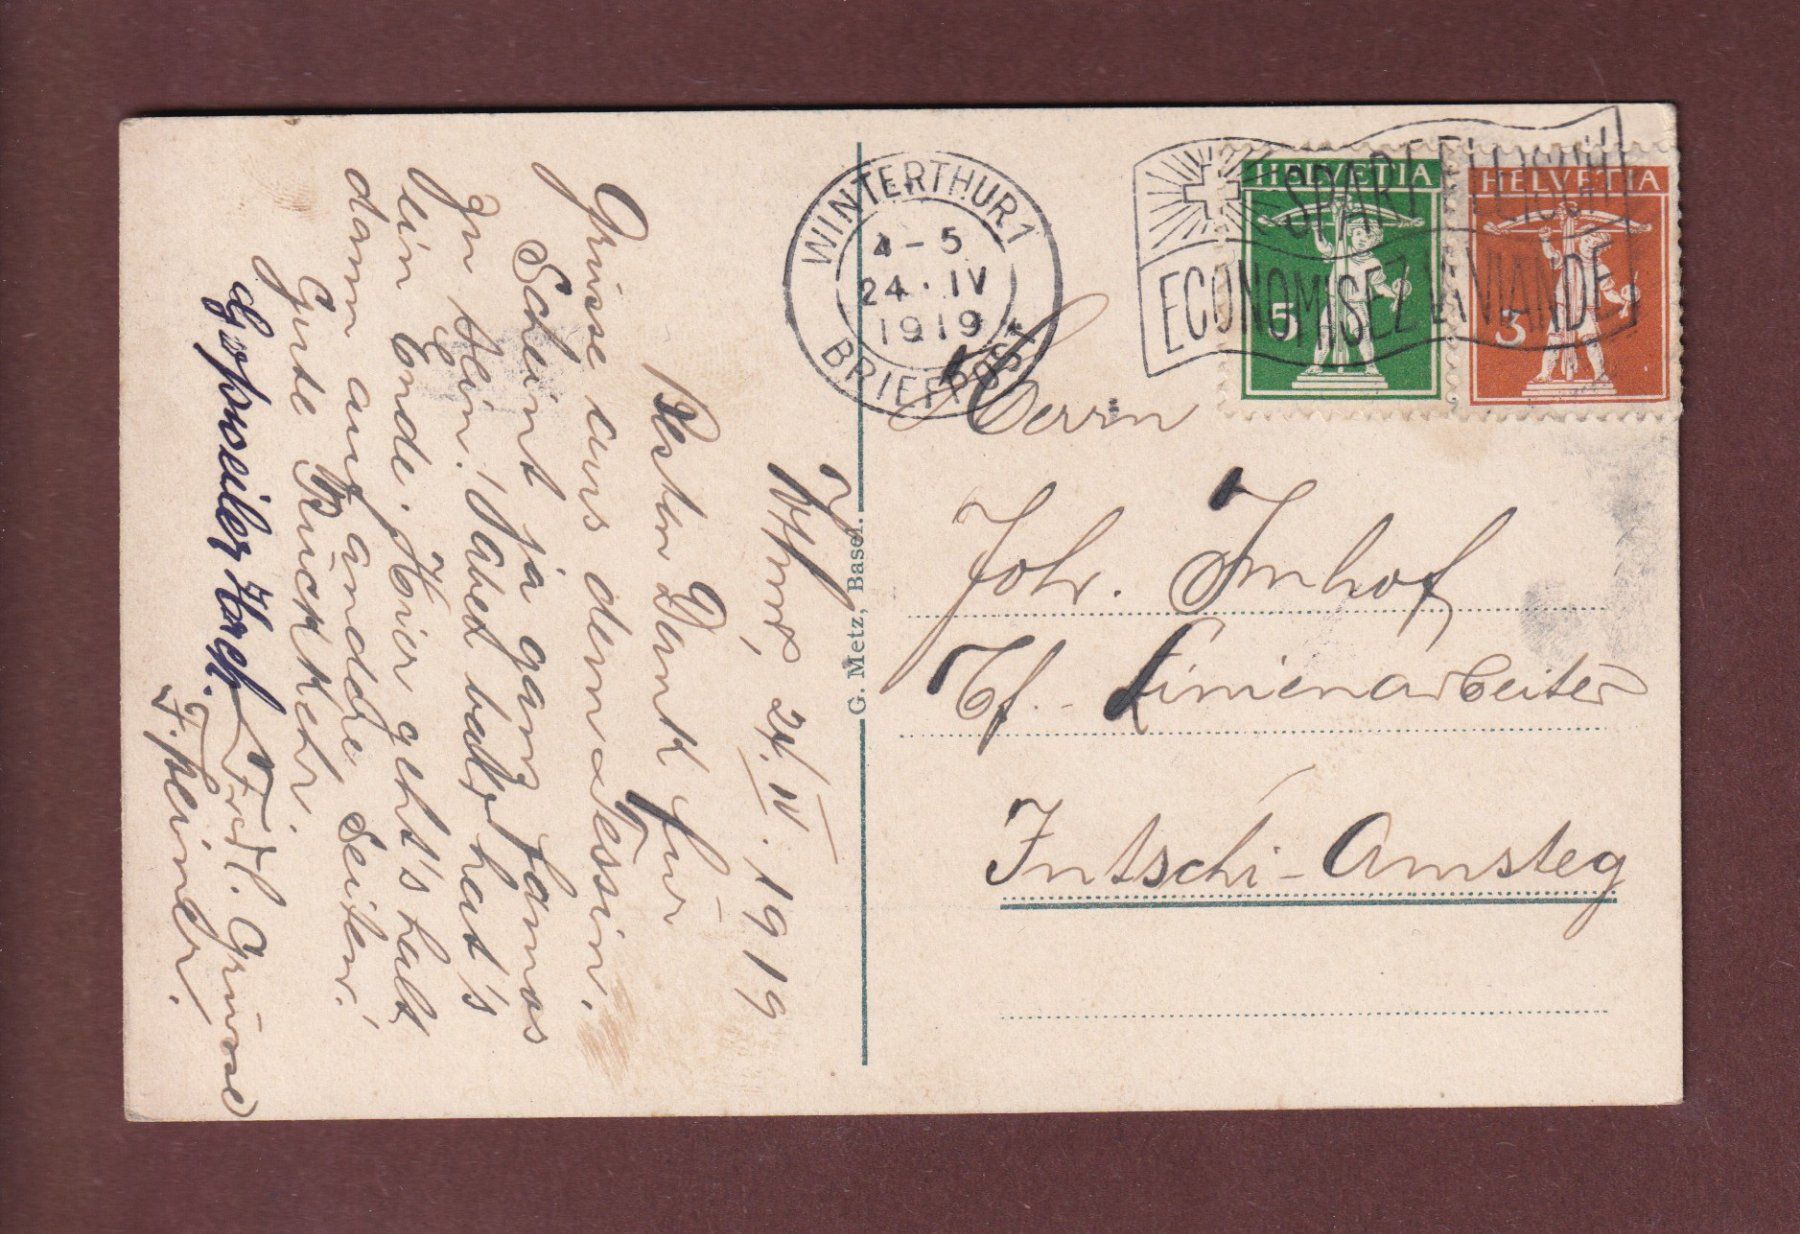 WINTERTHUR 1
4-5
24. IV
1919
BRIEFPOST
SPART FLEISCH
ECONOMISEZ LA VIANDE
HELVETIA
5
HELVETIA
3
Herrn
Joh. Imhof
Linienarbeiter
Intschi-Amsteg
G. Metz, Basel.
24/IV. 1919
Besten Dank für
Grüsse aus dem Tessin.
Scheint ja ganz famos
zu sein! Nabel bald hat's
ein Ende. Hier geht's halt
dann auf andere Seiten.
Gute Rückkehr.
Frdl. Grüsse